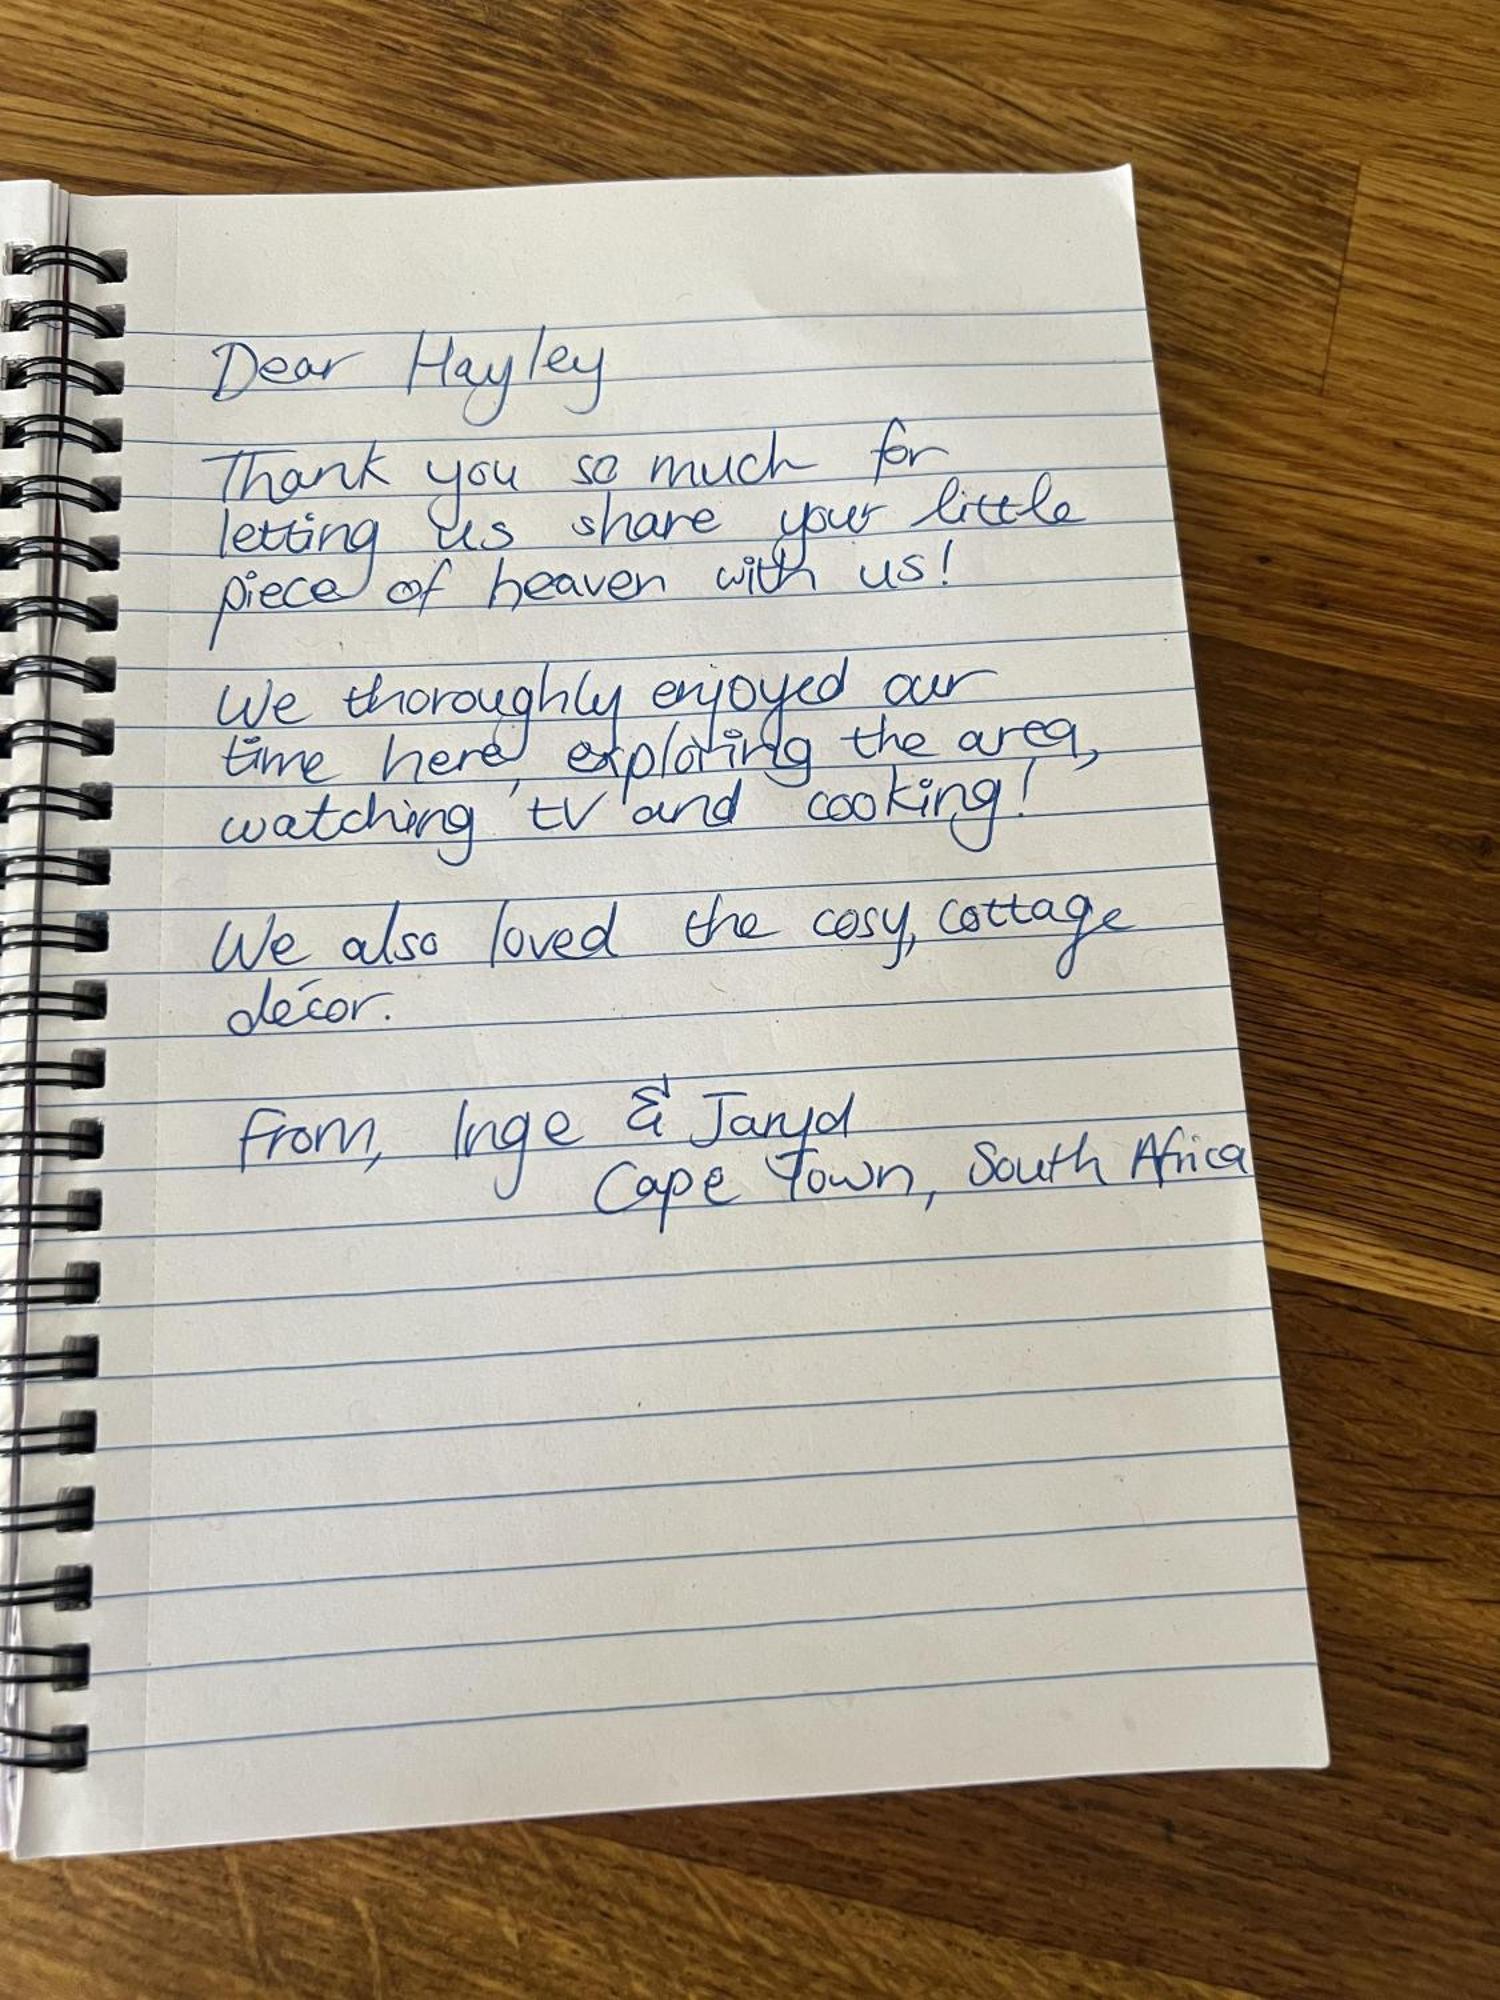 Dear Hayley
Thank you so much for
letting us share your little
piece of heaven with us!
We thoroughly enjoyed our
time here, exploring the area,
watching tv and cooking!
We also loved the cosy, cottage
décor.
From, Inge & Jaryd
Cape Town, South Africa